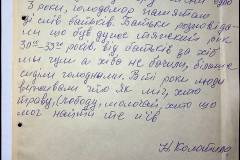 3 роки, голодомор памятаю
зі слів батьків. Батьки розповіда-
ли що був дуже тяжкий рік
30ті-33ті років, від батьків за хліб
ми чули а хіба не бачили, більше
сиділи голодними. В ті роки люди
виживали хто як міг, хто
траву, лободу, молочай, хто що
мог найти те й їв
Н. Колотило